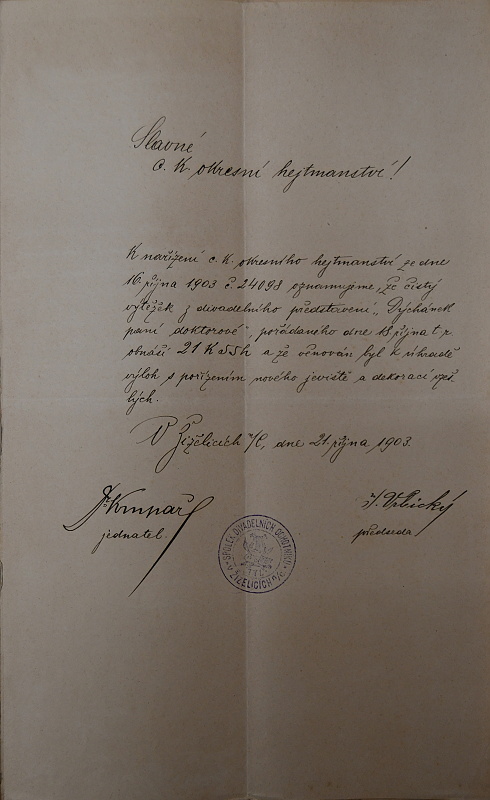 Slavné
c. k. okresní hejtmanství!
K nařízení c. k. okresního hejtmanství ze dne
16. října 1903 č. 24098 oznamujeme, že čistý
výtěžek z divadelního představení „Dýchánek
paní doktorové“, pořádaného dne 18. října t. r.
obnáší 21 K 55 h a že věnován byl k úhradě
výloh s pořízením nového jeviště a dekorací vzeš-
lých.
V Žiželicích n/C, dne 21. října 1903.
jednatel.
předseda
SPOLEK DIVADELNÍCH OCHOTNÍKŮ
V ŽIŽELICÍCH n/C.